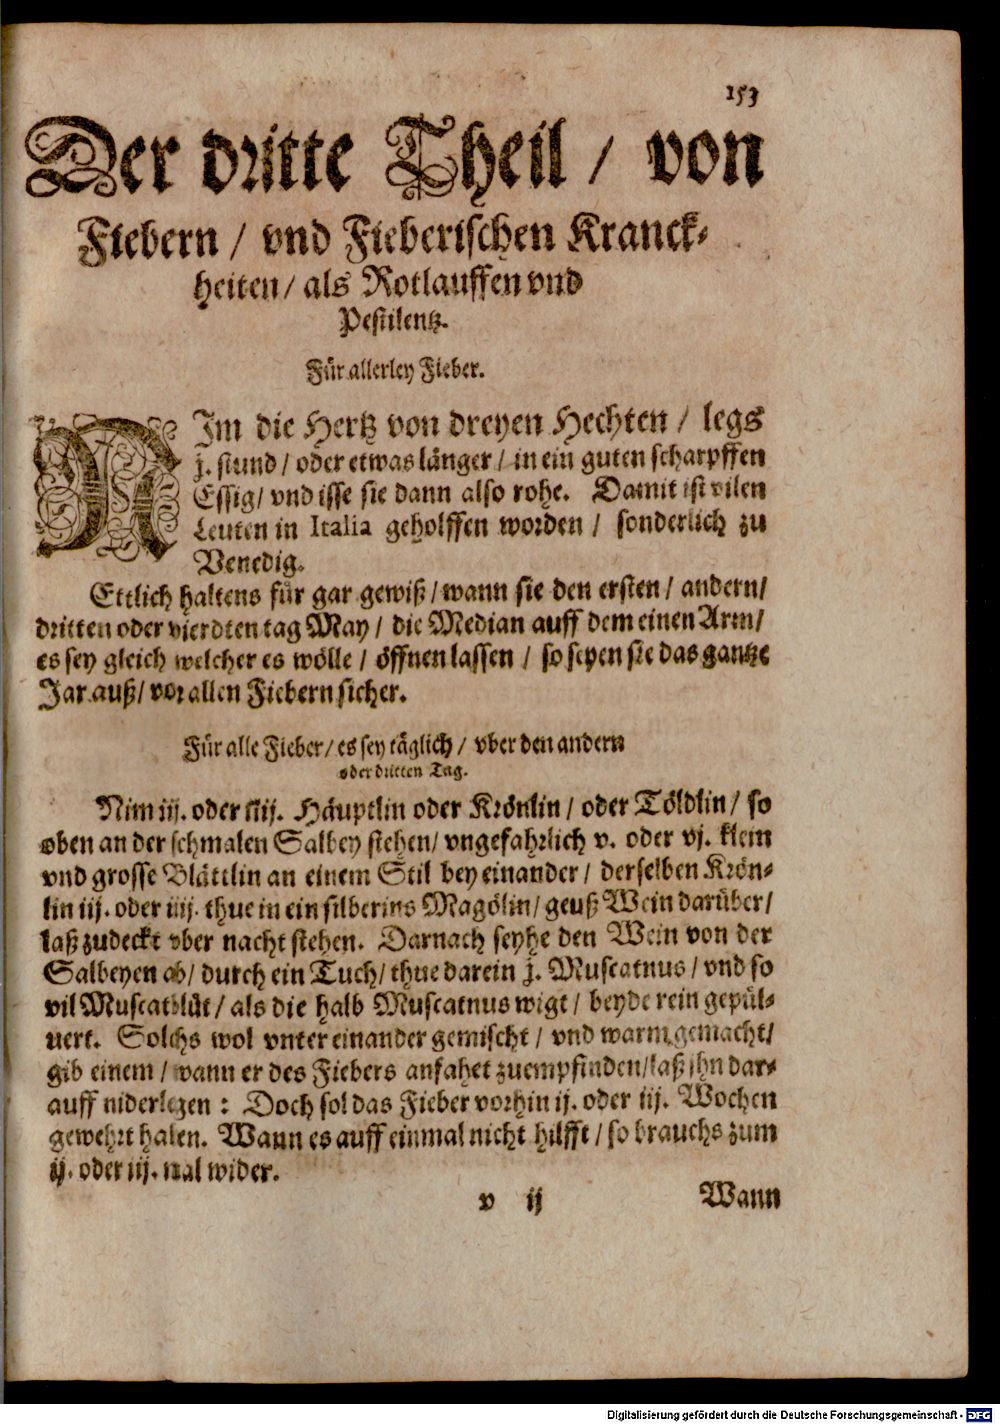 153
Der dritte Theil / von
Fiebern / vnd Fieberischen Kranck-
heiten / als Rotlauffen vnd
Pestilentz.
Für allerley Fieber.
NIm die Hertz von dreyen Hechten / legs
j. stund / oder etwas länger / in ein guten scharpffen
Essig / vnd isse sie dann also rohe. Damit ist vilen
Leuten in Italia geholffen worden / sonderlich zu
Venedig.
Ettlich haltens für gar gewiß / wann sie den ersten / andern /
dritten oder vierdten tag May / die Median auff dem einen Arm /
es sey gleich welcher es wölle / öffnen lassen / so seyen sie das gantze
Jar auß / vor allen Fiebern sicher.
Für alle Fieber / es sey täglich / vber den andern
oder dritten Tag.
Nim iij. oder iiij. Häuptlin oder Krönlin / oder Töldlin / so
oben an der schmalen Salbey stehen / vngefahrlich v. oder vj. klein
vnd grosse Blättlin an einem Stil bey einander / derselben Krön-
lin iij. oder iiij. thue in ein silberins Magölin / geuß Wein darüber /
laß zudeckt vber nacht stehen. Darnach seyhe den Wein von der
Salbeyen ab / durch ein Tuch / thue darein j. Muscatnus / vnd so
vil Muscatblüt / als die halb Muscatnus wigt / beyde rein gepül-
uert. Solchs wol vnter einander gemischt / vnd warm gemacht /
gib einem / wann er des Fiebers anfahet zuempfinden / laß ihn dar-
auff niderlegen : Doch sol das Fieber vorhin ij. oder iij. Wochen
gewehrt haben. Wann es auff einmal nicht hilfft / so brauchs zum
ij. oder iij. mal wider.
v ij Wann
Digitalisierung gefördert durch die Deutsche Forschungsgemeinschaft - DFG